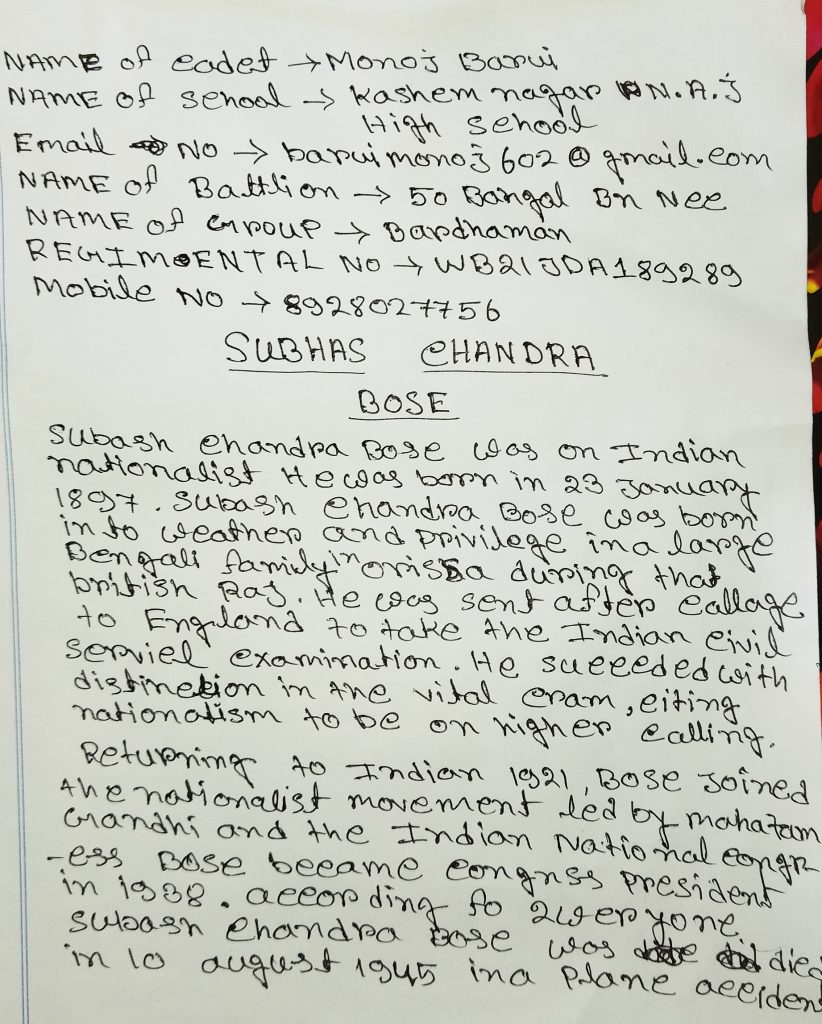 NAME of cadet → Monoj Barui
NAME of school → Kashem nagar N.A.J
High school
Email No → baruimonoj602@gmail.com
NAME of Battlion → 50 Bangal Bn Ncc
NAME of Group → Bardhaman
REGIMENTAL NO → WB21JDA189289
Mobile No → 8928027756
SUBHAS CHANDRA
BOSE
Subash chandra Bose was on Indian
nationalist He was born in 23 January
1897. Subash chandra Bose was born
in to weather and privilege in a large
Bengali family in orissa during that
british Raj. He was sent after callage
to England to take the Indian civil
serviel examination. He succeded with
distinction in the vital eram, citing
nationalism to be on higher calling.
Returning to Indian 1921, Bose Joined
the nationalist movement led by mahatam
Grandhi and the Indian National congr
-ess Bose became congrss president
in 1938. according to
Subash chandra Bose was died
in 10 august 1945 in a plane acciden